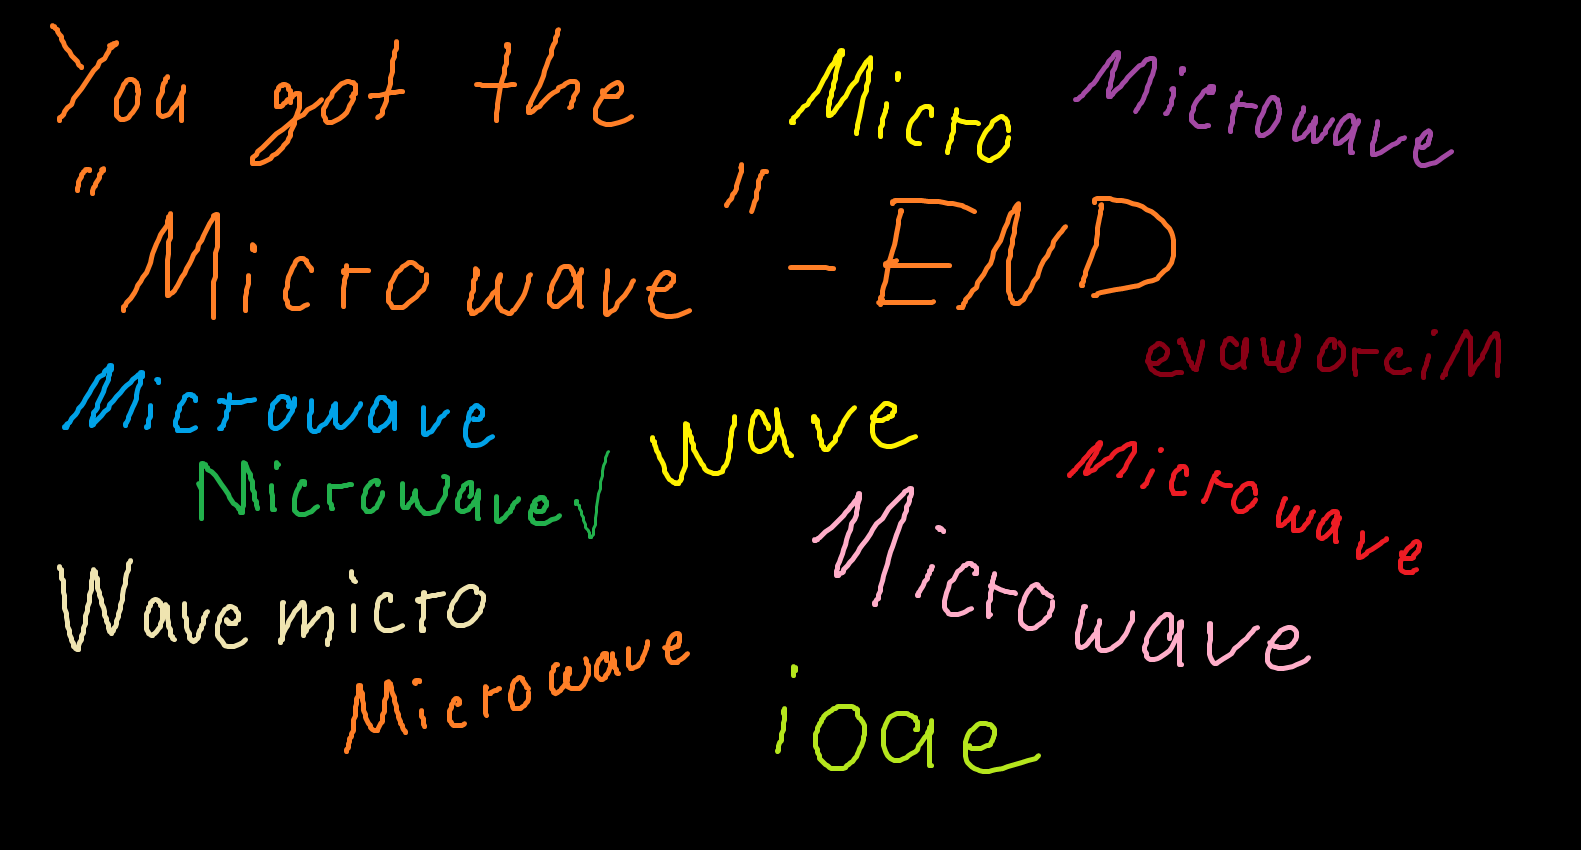 You got the
Micro
Microwave
"Microwave" - END
evaworciM
Microwave
wave
Microwave√
Microwave
Microwave
Wave micro
Microwave
ioae